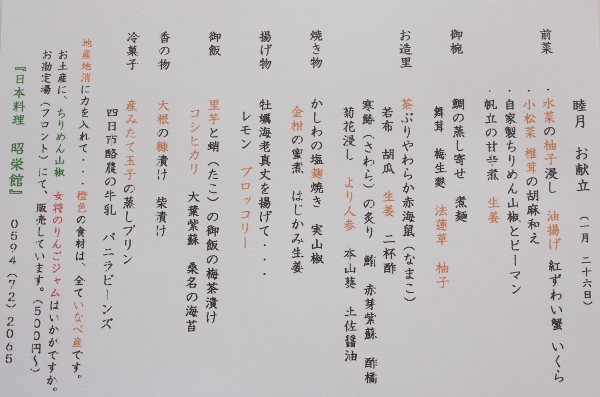 睦月　お献立　（一月　二十六日）
前菜
・水菜の柚子浸し　油揚げ　紅ずわい蟹　いくら
・小松菜　椎茸の胡麻和え
・自家製ちりめん山椒とピーマン
・帆立の甘辛煮　生姜
御椀
鯛の蒸し寄せ　煮麺
舞茸　梅生麩　法蓮草　柚子
お造里
茶ぶりやわらか赤海鼠（なまこ）
若布　胡瓜　生姜　二杯酢
寒鰆（さわら）の炙り　鮪　赤芽紫蘇　酢橘
菊花浸し　より人参　本山葵　土佐醤油
焼き物
かしわの塩麹焼き　実山椒
金柑の蜜煮　はじかみ生姜
揚げ物
牡蠣海老真丈を揚げて・・・
レモン　ブロッコリー
御飯
里芋と蛸（たこ）の御飯の梅茶漬け
コシヒカリ　大葉紫蘇　桑名の海苔
香の物
大根の糠漬け　柴漬け
冷菓子
産みたて玉子の蒸しプリン
四日市酪農の牛乳　バニラビーンズ
地産地消に力を入れて・・・橙色の食材は、全ていなべ産です。
お土産に、ちりめん山椒　女将のりんごジャムはいかがですか。
お勘定場（フロント）にて、販売しています。（500円～）
『日本料理　昭栄館』　0594（72）2065